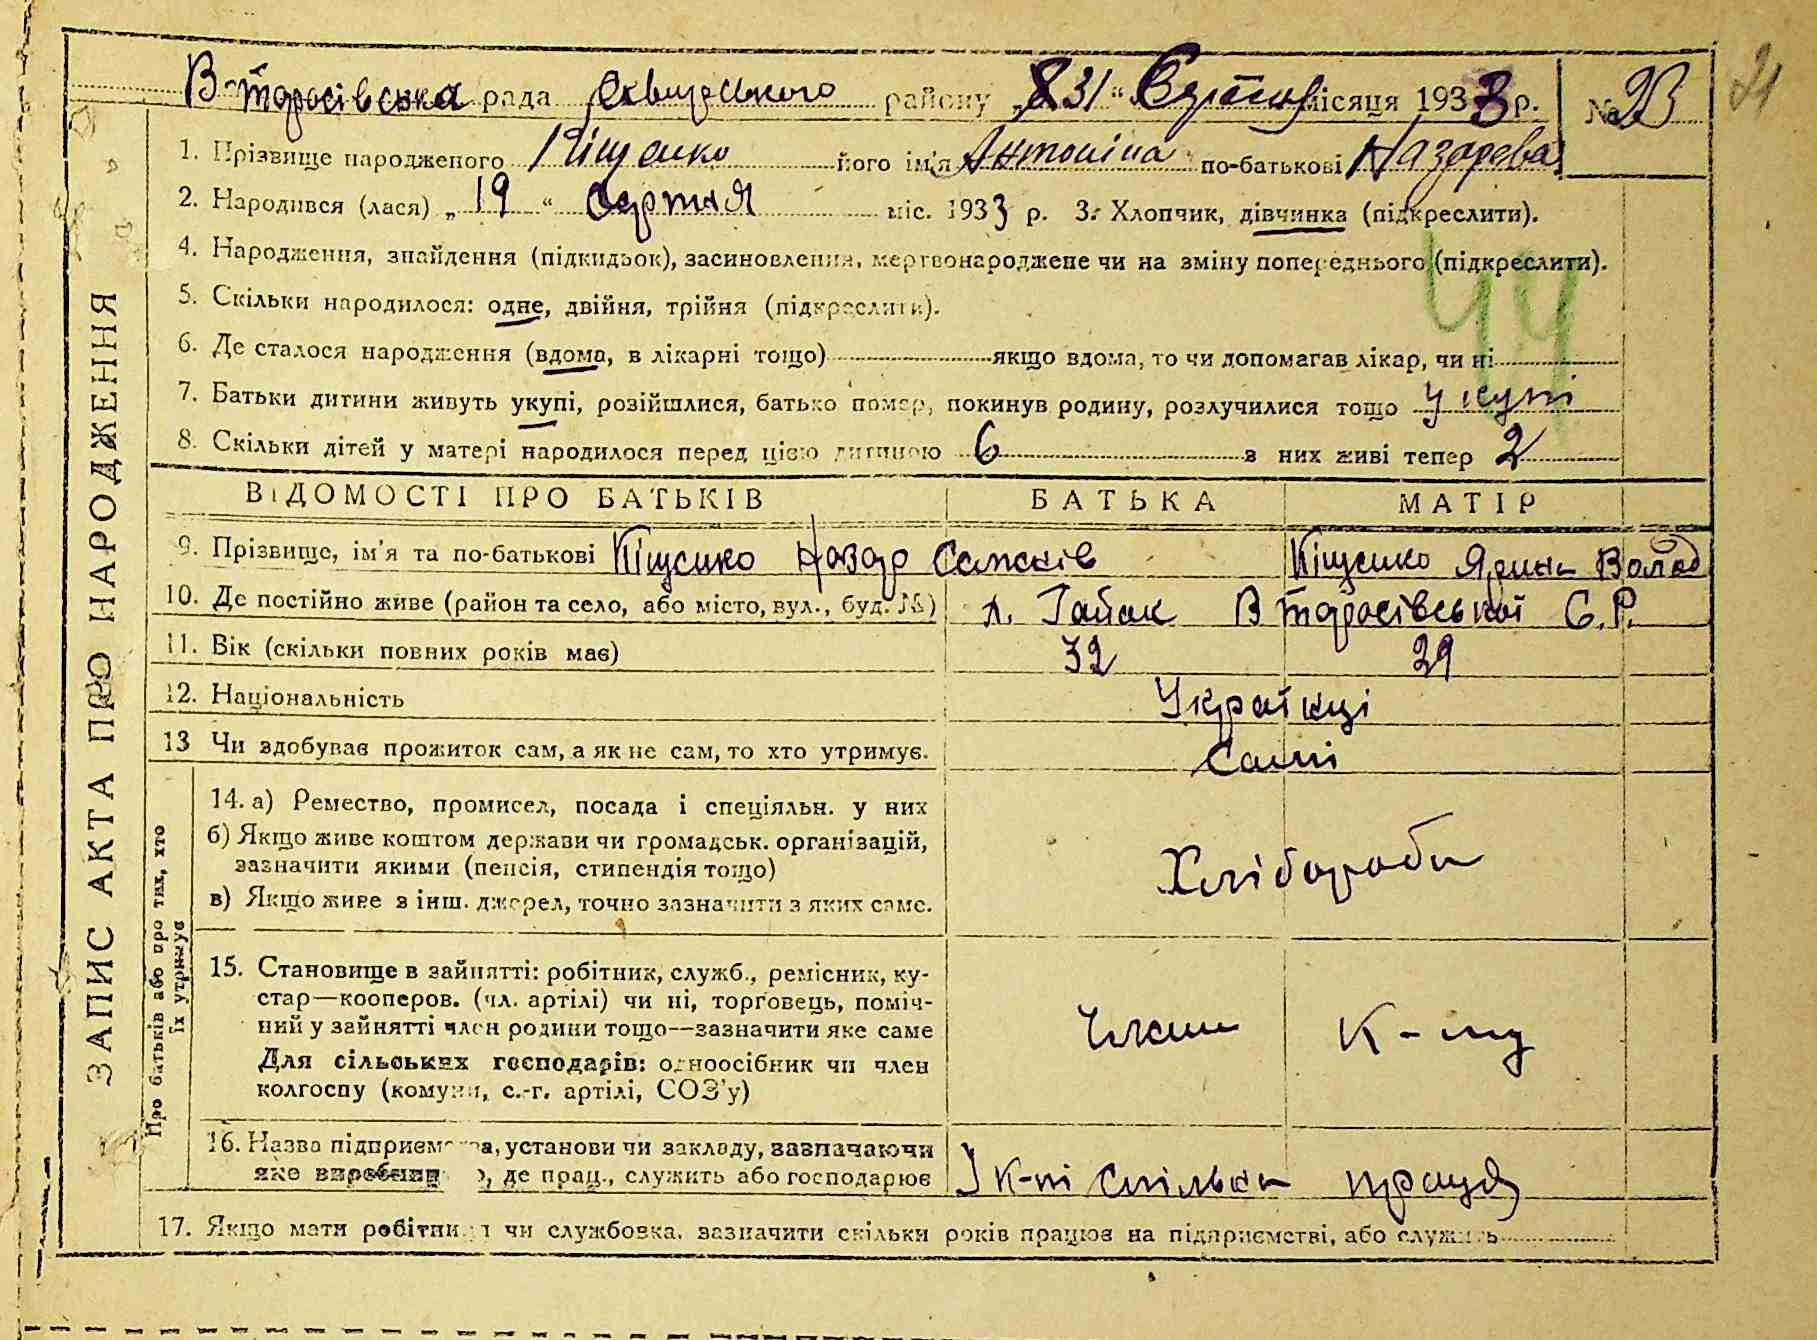 В-Тарасівська рада Сквирського району „31“ Серпня місяця 1933 р. № 23
21
ЗАПИС АКТА ПРО НАРОДЖЕННЯ
1. Прізвище народженого Кіщенко його ім'я Антоніна по-батькові Назарева
2. Народився (лася) „19“ серпня міс. 1933 р. 3. Хлопчик, дівчинка (підкреслити).
4. Народження, знайдення (підкидьок), засиновлення, мертвонароджене чи на зміну попереднього (підкреслити).
44
5. Скільки народилося: одне, двійня, трійня (підкреслити).
6. Де сталося народження (вдома, в лікарні тощо) якщо вдома, то чи допомагав лікар, чи ні
7. Батьки дитини живуть укупі, розійшлися, батько помер, покинув родину, розлучилися тощо укупі
8. Скільки дітей у матері народилося перед цією дитиною 6 з них живі тепер 2
ВІДОМОСТІ ПРО БАТЬКІВ БАТЬКА МАТІР
9. Прізвище, ім'я та по-батькові Кіщенко Назар Кіщенко Ярина Волод
10. Де постійно живе (район та село, або місто, вул., буд. №) х. Гайок В Тарасівської С.Р.
11. Вік (скільки повних років має) 32 29
12. Національність Українці
13 Чи здобував прожиток сам, а як не сам, то хто утримує. Самі
Про батьків або про тих, хто їх утримує
14. а) Ремество, промисел, посада і спеціяльн. у них
б) Якщо живе коштом держави чи громадськ. організацій,
зазначити якими (пенсія, стипендія тощо)
Хлібороби
в) Якщо живе з інш. джерел, точно зазначити з яких саме.
15. Становище в зайнятті: робітник, служб., ремісник, ку-
стар—кооперов. (чл. артілі) чи ні, торговець, поміч-
ний у зайнятті член родини тощо—зазначити яке саме
Члени К-пу
Для сільських господарів: одноосібник чи член
колгоспу (комуни, с.-г. артілі, СОЗ'у)
16. Назва підприємства, установи чи закладу, зазначаючи
яке виробництво, де прац., служить або господарює У К-пі спільна праця
17. Якщо мати робітниця чи службовка, зазначити скільки років працює на підприємстві, або служить